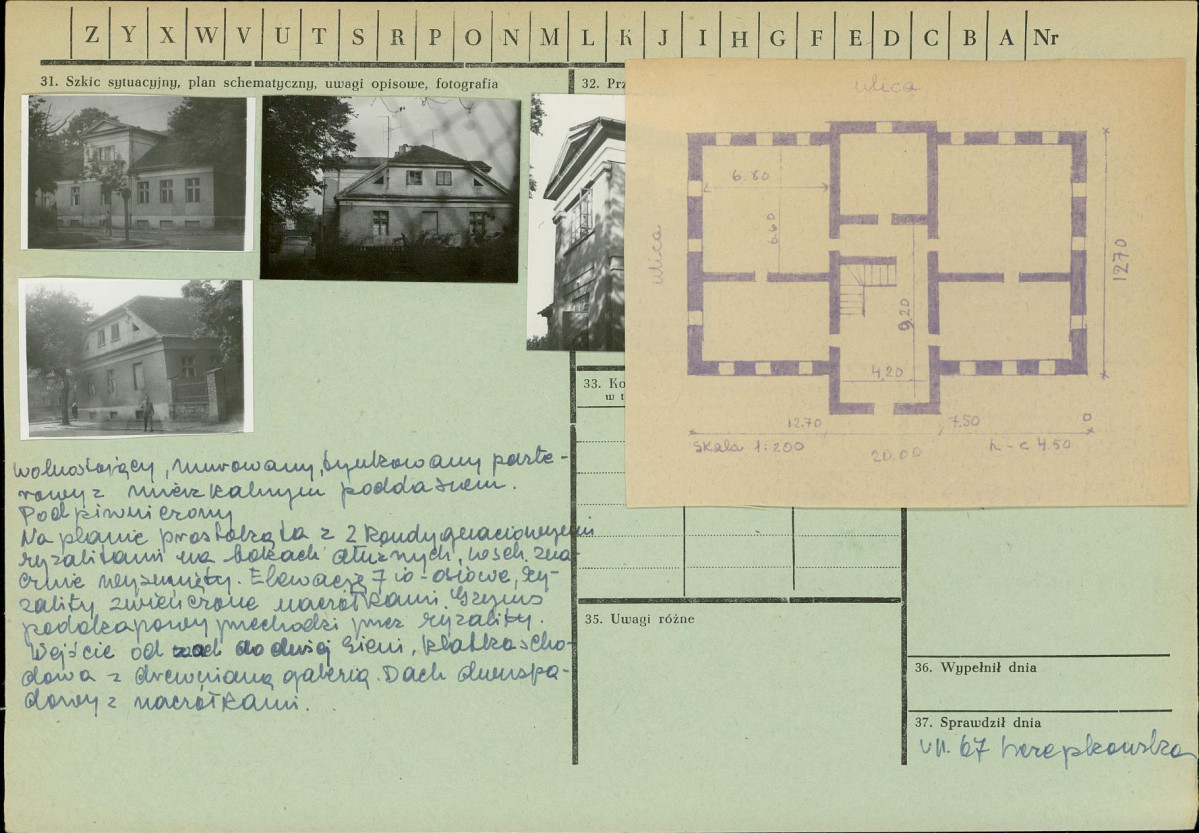 Z Y X W V U T S R P O N M L K J I H G F E D C B A Nr
31. Szkic sytuacyjny, plan schematyczny, uwagi opisowe, fotografia
32. Prz
ulica
6.80
6.60
ulica
9.20
1270
4,20
12.70
7.50
0
Skala 1:200
20.00
h-c 4.50
33. Ko
w t
wolnostojący, murowany, tynkowany parte-
rowy z mieszkalnym poddaszem.
Podpiwniczony
Na planie prostokąta z 2 kondygnacjowymi
ryzalitami na bokach dłuższych, wsch. zna-
cznie wysunięty. Elewacje 7 i osiowe, ry-
zality zwieńczone naczółkami. Gzyms
podokapowy przechodzi przez ryzality.
Wejście od do dużej sieni, klatka scho-
dowa z drewnianą galerią. Dach dwuspa-
dowy z naczółkami.
35. Uwagi różne
36. Wypełnił dnia
37. Sprawdził dnia
VII. 67